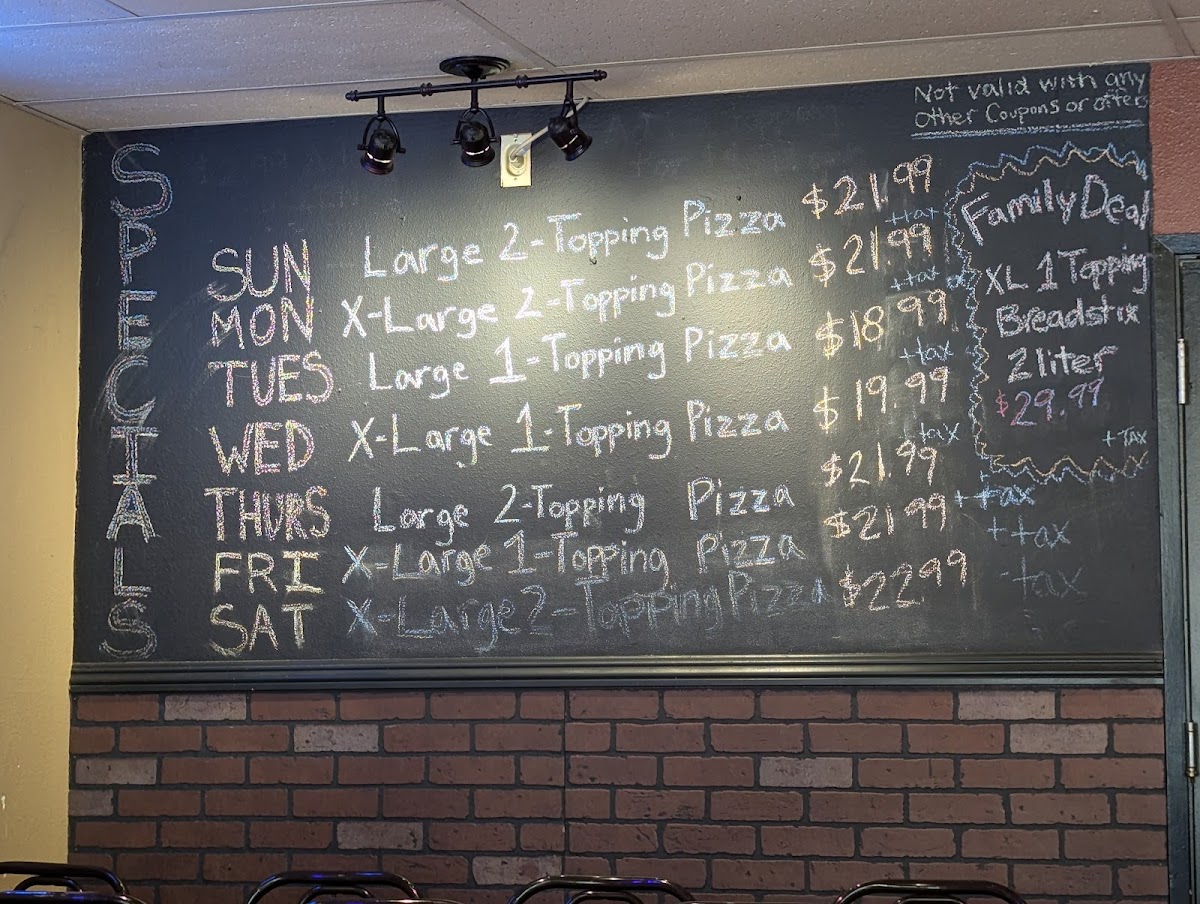 SPECIALS
SUN Large 2-Topping Pizza $21.99 +tax
MON X-Large 2-Topping Pizza $21.99 +tax
TUES Large 1-Topping Pizza $18.99 +tax
WED X-Large 1-Topping Pizza $19.99 +tax
THURS Large 2-Topping Pizza $21.99 +tax
FRI X-Large 1-Topping Pizza $21.99 +tax
SAT X-Large 2-Topping Pizza $22.99 +tax
Not valid with any
other Coupons or offers
Family Deal
XL 1 Topping
Breadstix
2 liter
$29.99
+TAX